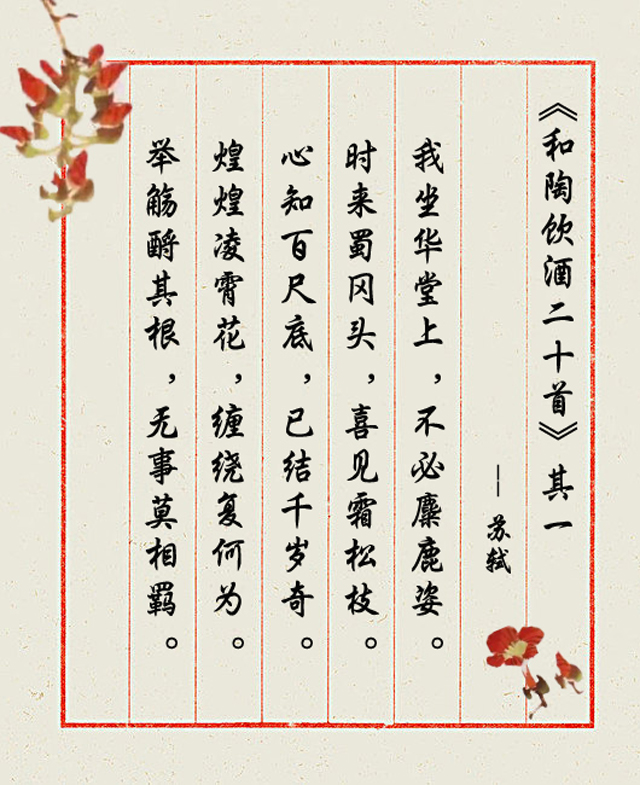 《和陶饮酒二十首》其一
—苏轼
我坐华堂上，不必麋鹿姿。
时来蜀冈头，喜见霜松枝。
心知百尺底，已结千岁奇。
煌煌凌霄花，缠绕复何为。
举觞酹其根，无事莫相羁。